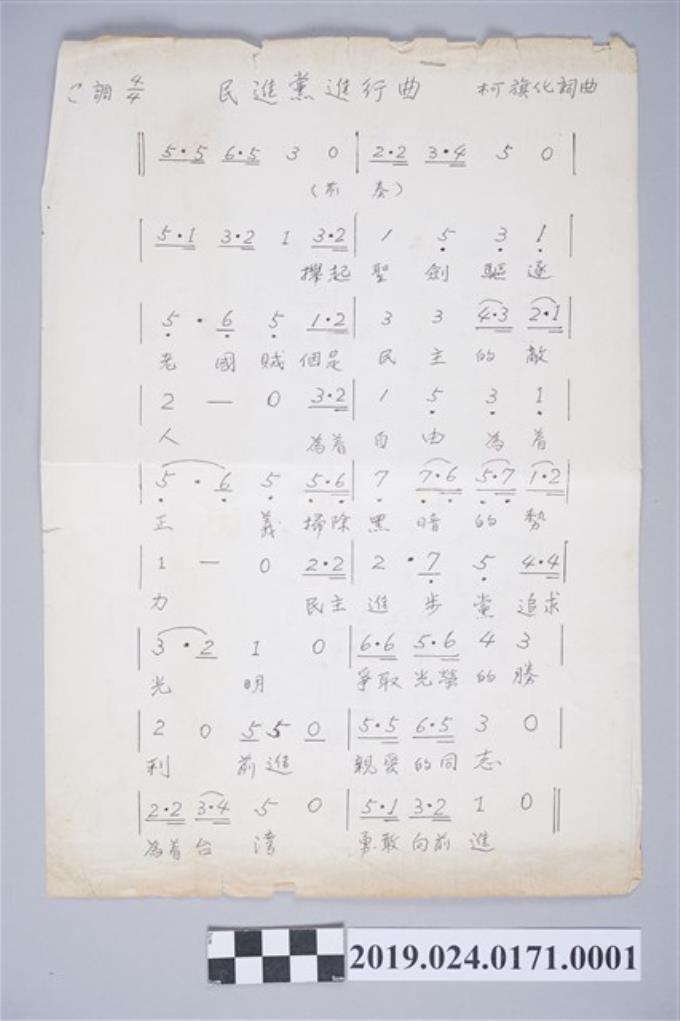 C調 4/4 民進黨進行曲 柯旗化詞曲
‖ 5·5 6·5 3 0 | 2·2 3·4 5 0 |
(前奏)
| 5·1 3·2 1 3·2 | 1 5 3 1 |
攑起聖劍驅逐
| 5·6 5 1·2 | 3 3 4·3 2·1 |
老國賊個是民主的敵
| 2 — 0 3·2 | 1 5 3 1 |
人為着自由為着
| 5·6 5 5·6 | 7 7·6 5·7 1·2 |
正義掃除黑暗的勢
| 1 — 0 2·2 | 2·7 5 4·4 |
力民主進步黨追求
| 3·2 1 0 | 6·6 5·6 4 3 |
光明爭取光榮的勝
| 2 0 5 5 0 | 5·5 6·5 3 0 |
利前進親愛的同志
| 2·2 3·4 5 0 | 5·1 3·2 1 0 ‖
為着台灣勇敢向前進
2019.024.0171.0001